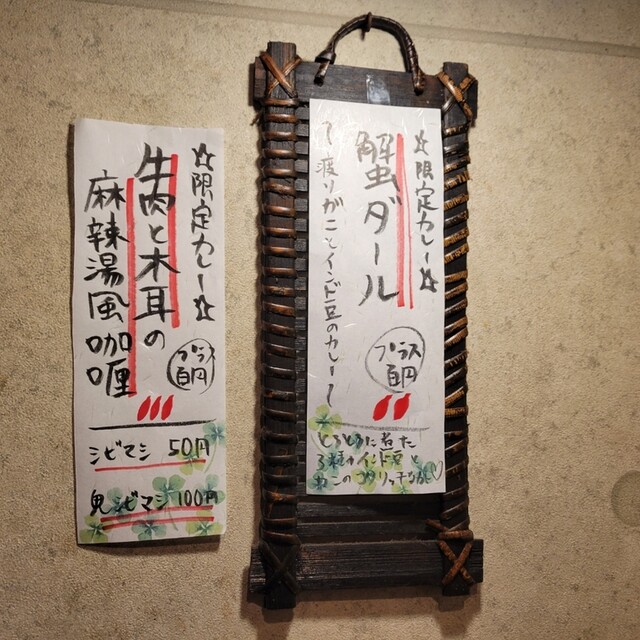 ☆限定カレー☆
蟹ダール
〜渡りがことインド豆のカレー〜
プラス
百円
とろとろに煮た
3種のインド豆と
☆限定カレー☆
牛肉と木耳の
麻辣湯風咖喱
プラス
百円
シビマシ 50円
鬼シビマシ 100円